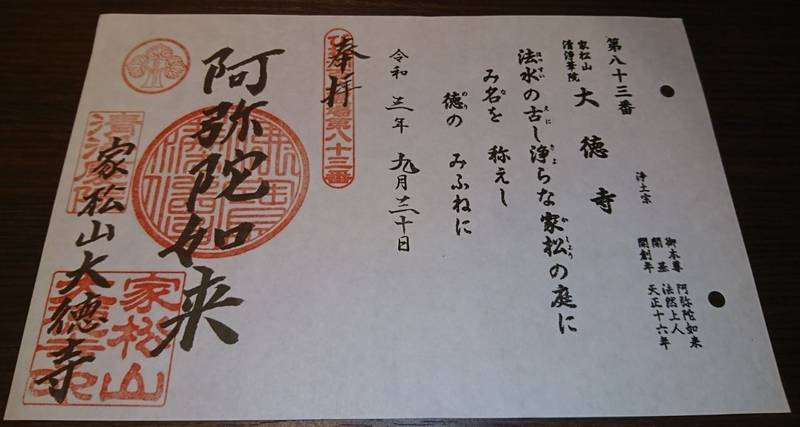 第八十三番
家松山
清浄華院
大徳寺
浄土宗
御本尊 阿弥陀如来
開基 法然上人
開創年 天正十六年
法水の古し浄らな家松の庭に
み名を 称えし
徳の みふねに
令和 三年 九月 三十日
奉拝
場第八十三番
阿弥陀如来
家松山大徳寺
家松山